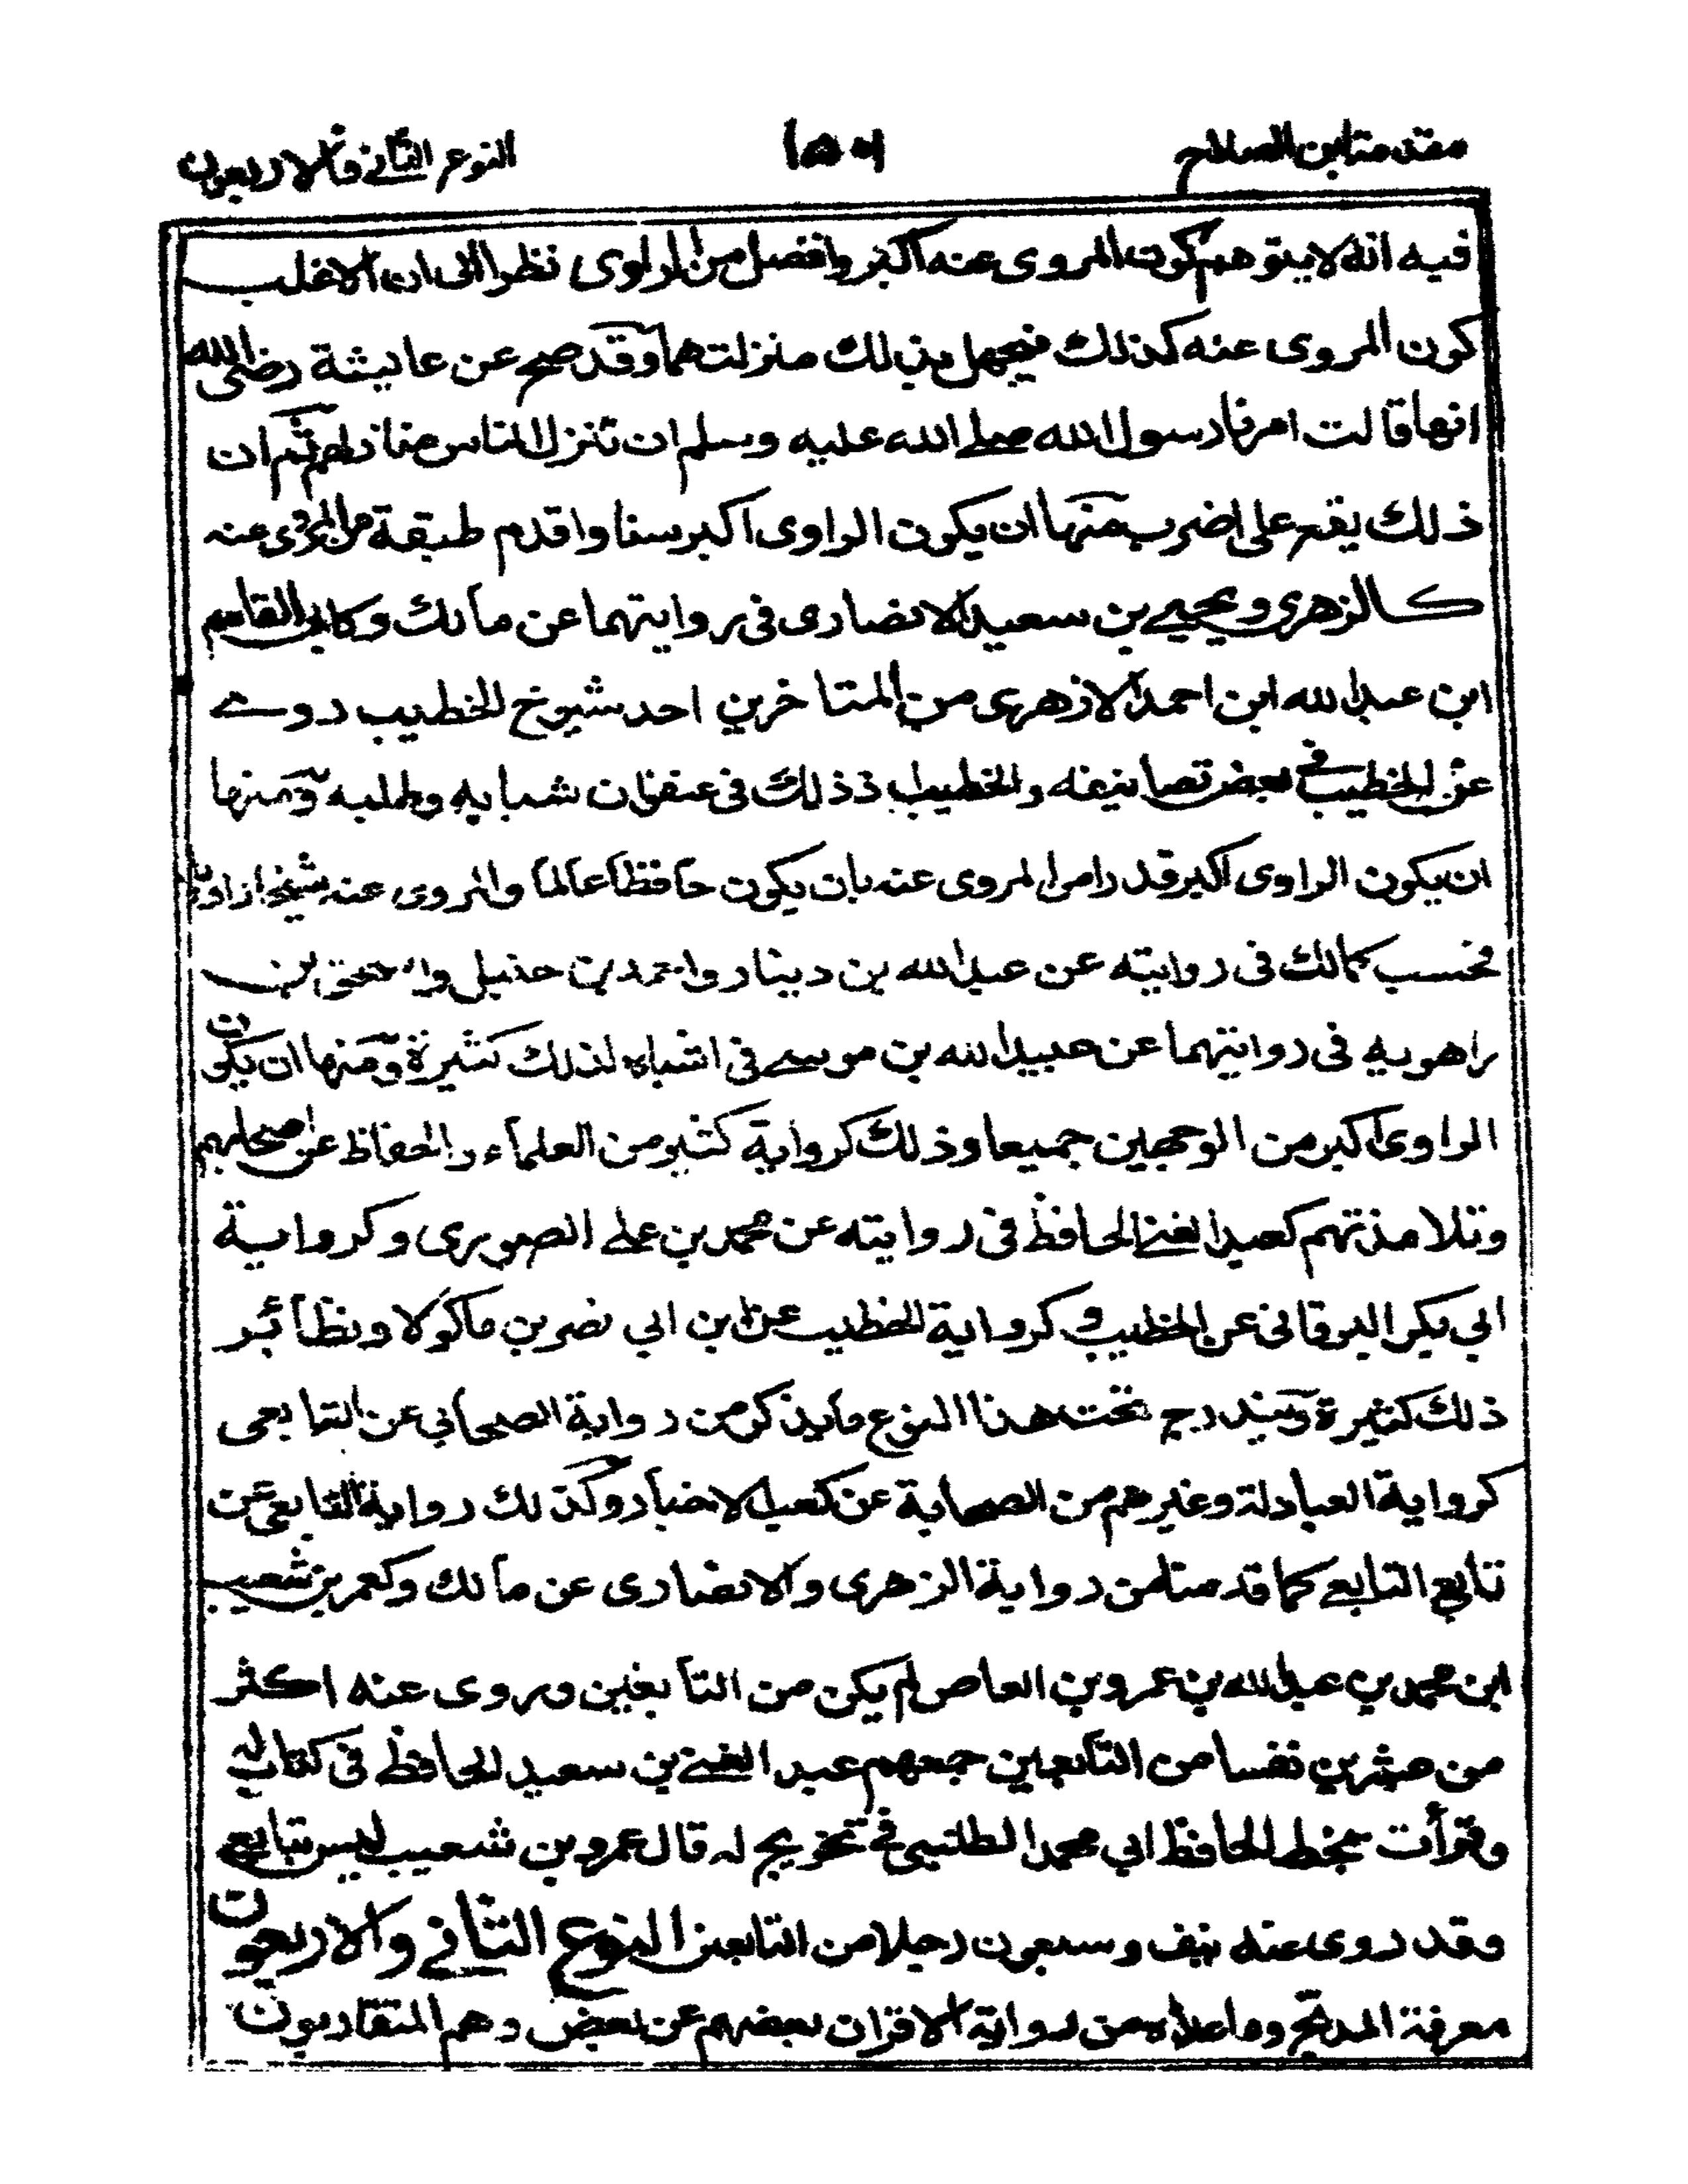 مقدمة ابن الصلاح
النوع الثاني والاربعون
فيه انه لا يتوهم كون المروى عنه اكبر وافضل من الراوى نظرا الى ان الاغلب
كون المروى عنه كذلك فيجهل بذلك منزلتهما وقد صح عن عايشة رضى الله
انها قالت امرنا رسول الله صلے الله عليه وسلم ان ننزل الناس منازلهم ثم ان
ذلك يقع على اضرب منها ان يكون الراوى اكبر سنا واقدم طبقة من المروى عنه
كالزهرى ويحيے بن سعيد الانصارى فى روايتهما عن مالك وكابى القاسم
ابن عبد الله ابن احمد الازهرى من المتاخرين احد شيوخ الخطيب روے
عن الخطيب فے بعض تصانيفه والخطيب اذ ذلك فى عنفوان شبابه وطلبه ومنها
ان يكون الراوى اكبر قدرا من المروى عنه بان يكون حافظا عالما والمروى عنه شيخا راويا
فحسب كمالك فى روايته عن عبد الله بن دينار واحمد بن حنبل واسحق بن
راهويه فى روايتهما عن عبيد الله بن موسے فى اشباه لذلك كثيرة ومنها ان يكون
الراوى اكبر من الوجهين جميعا وذلك كرواية كثير من العلماء والحفاظ عن اصحابهم
وتلامذتهم كعبد الغنے الحافظ فى روايته عن محمد بن علے الصورى وكرواية
ابي بكر البرقانى عن الخطيب وكرواية الخطيب عن ابن ابي نصر بن ماكولا ونظائر
ذلك كثيرة ويندرج تحت هذا النوع ما يذكر من رواية الصحابي عن التابعى
كرواية العبادلة وغيرهم من الصحابة عن كعب الاحبار وكذلك رواية التابعى عن
تابع التابعے كما قدمنا من رواية الزهرى والانصارى عن مالك وكعمر بن شعيب
ابن محمد بن عبد الله بن عمرو بن العاص لم يكن من التابعين وروى عنه اكثر
من عشرين نفسا من التابعين جمعهم عبد الغنے بن سعيد الحافظ فى كتاب له
وقرأت بخط الحافظ ابي محمد الطبسى فے تخريج له قال عمرو بن شعيب ليس بتابعے
وقد روى عنه نيف وسبعون رجلا من التابعين النوع الثانے والاربعون
معرفة المدبج وما عداه من رواية الاقران بعضهم عن بعض وهم المتقاربون